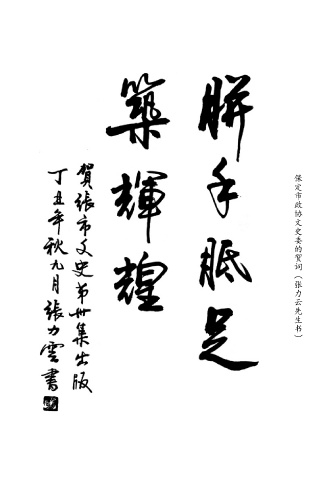 保定市政协文史委的贺词（张力云先生书）
胼手胝足
築輝煌
賀張市文史第卅集出版
丁丑年秋九月張力雲書